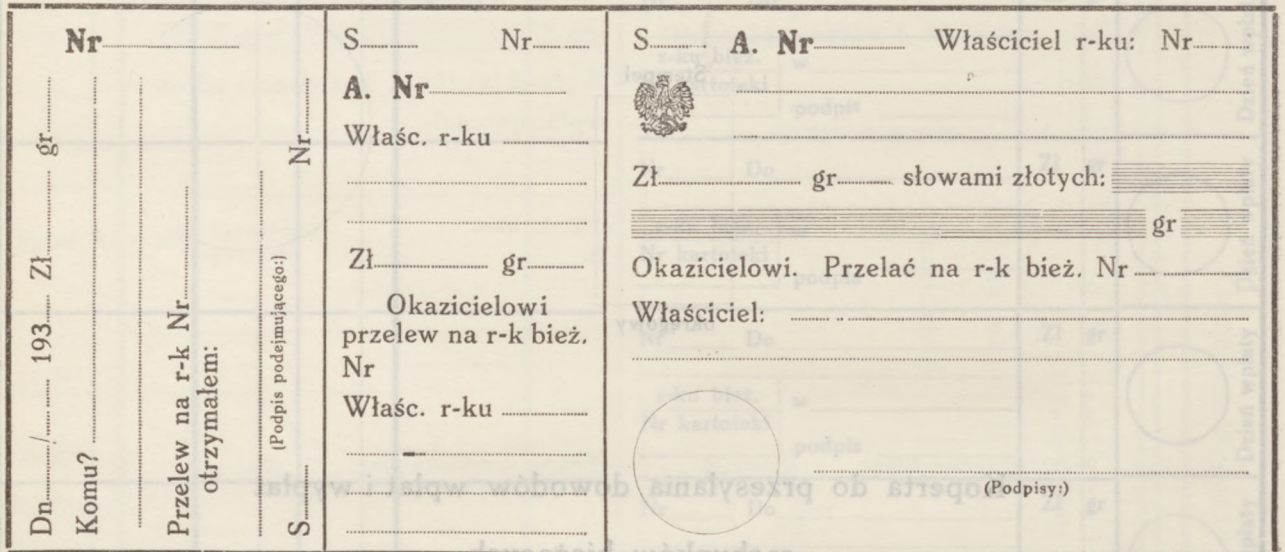 Nr
Dn / 193 Zł gr
Komu?
Przelew na r-k Nr
otrzymałem:
(Podpis podejmującego:)
S Nr
S Nr
A. Nr
Właśc. r-ku
Zł gr
Okazicielowi
przelew na r-k bież.
Nr
Właśc. r-ku
S A. Nr Właściciel r-ku: Nr
Zł gr słowami złotych:
gr
Okazicielowi. Przelać na r-k bież. Nr
Właściciel:
(Podpisy:)